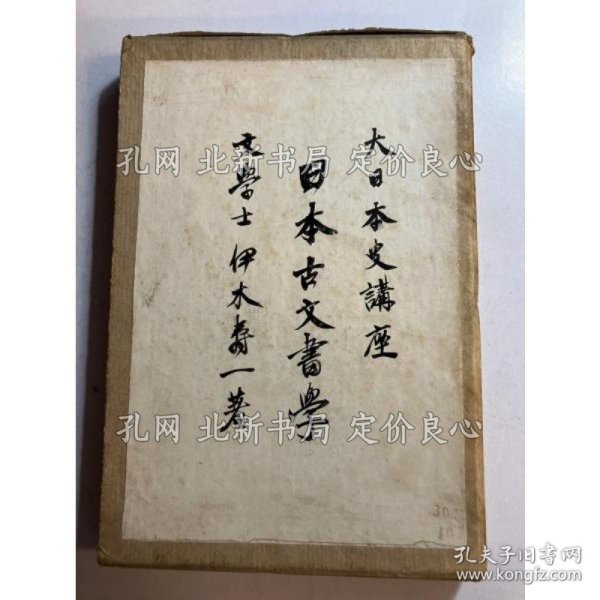 大日本史講座
日本古文書學
文學士 伊木壽一著
孔网 北新书局 定价良心
孔网 北新书局 定价良心
孔夫子旧书网
www.kongfz.com